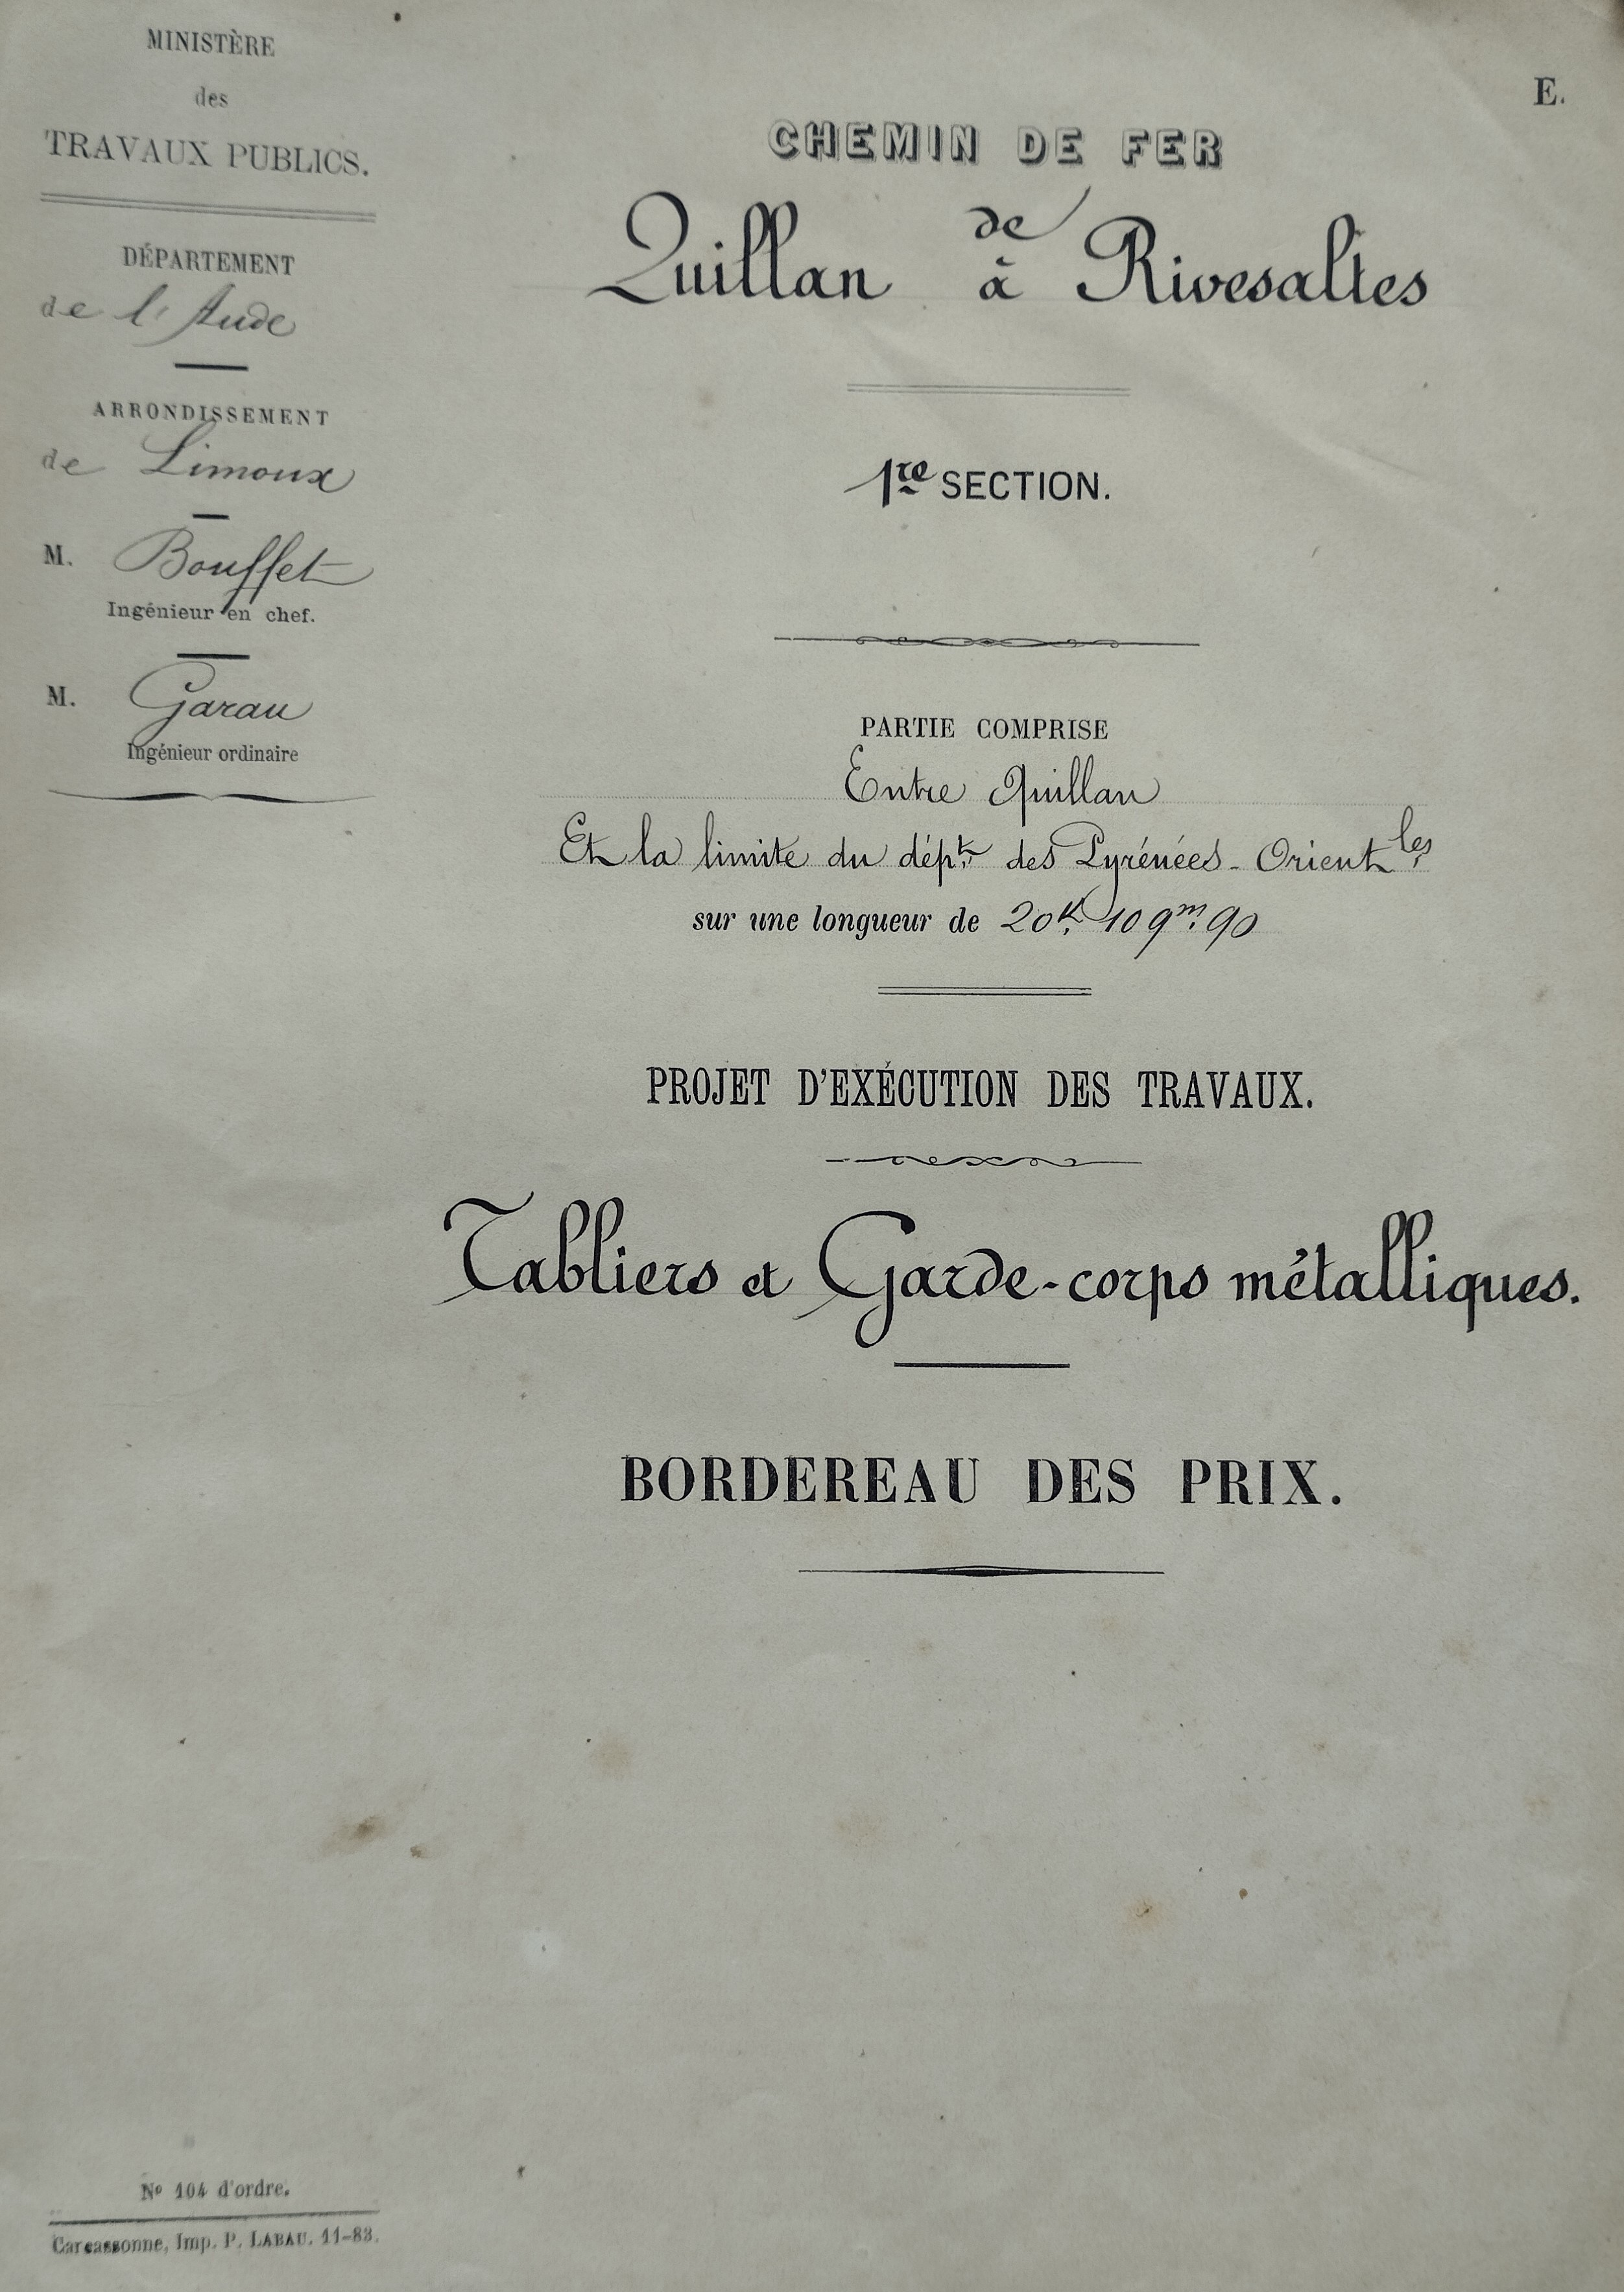 MINISTÈRE
des
TRAVAUX PUBLICS.
DÉPARTEMENT
de l'Aude
ARRONDISSEMENT
de Limoux
M. Bouffet
Ingénieur en chef.
M. Garau
Ingénieur ordinaire
E.
CHEMIN DE FER
de
Quillan à Rivesaltes
1re SECTION.
PARTIE COMPRISE
Entre Quillan
Et la limite du dépt. des Pyrénées-Orientles
sur une longueur de 20k. 109m.90
PROJET D'EXÉCUTION DES TRAVAUX.
Tabliers et Garde-corps métalliques.
BORDEREAU DES PRIX.
No 104 d'ordre.
Carcassonne, Imp. P. LABAU. 11-83.